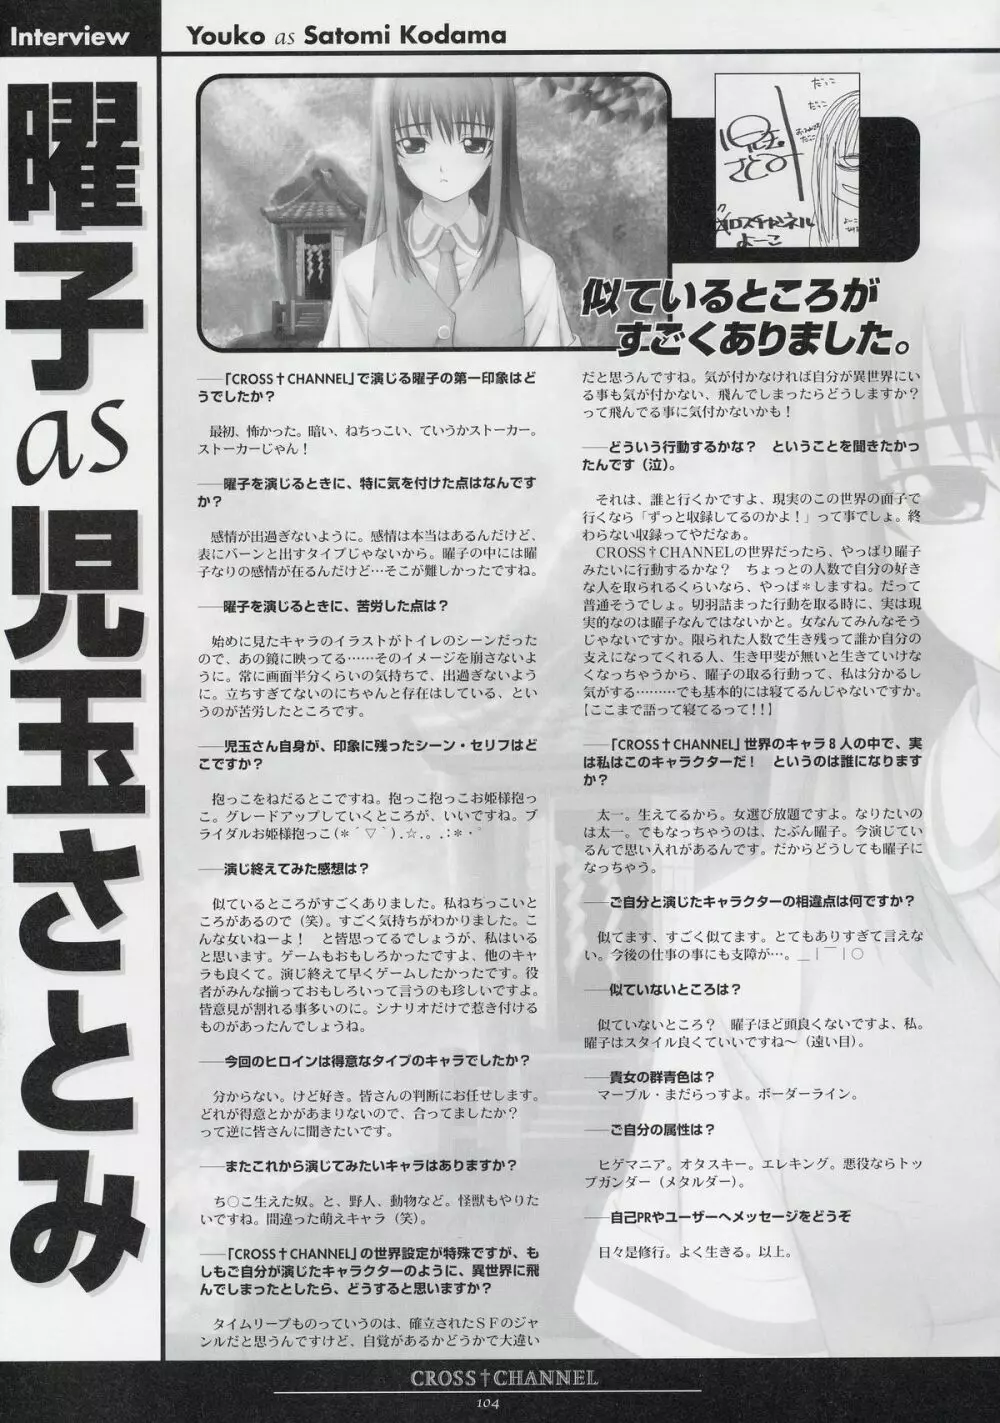 Interview
Youko as Satomi Kodama
曜子as児玉さとみ
だっこ
だっこ
児玉
さとみ
クロスチャンネル
よーこ
似ているところが
すごくありました。
──「CROSS†CHANNEL」で演じる曜子の第一印象はど
うでしたか？
最初、怖かった。暗い、ねちっこい、ていうかストーカー。
ストーカーじゃん！
──曜子を演じるときに、特に気を付けた点はなんです
か？
感情が出過ぎないように。感情は本当はあるんだけど、
表にバーンと出すタイプじゃないから。曜子の中には曜
子なりの感情が在るんだけど…そこが難しかったですね。
──曜子を演じるときに、苦労した点は？
始めに見たキャラのイラストがトイレのシーンだった
ので、あの鏡に映ってる……そのイメージを崩さないよう
に。常に画面半分くらいの気持ちで、出過ぎないように。
立ちすぎてないのにちゃんと存在はしている、とい
うのが苦労したところです。
──児玉さん自身が、印象に残ったシーン・セリフはど
こですか？
抱っこをねだるとこですね。抱っこ抱っこお姫様抱っ
こ。グレードアップしていくところが、いいですね。ブ
ライダルお姫様抱っこ(＊´▽｀).☆.。.:＊・゜
──演じ終えてみた感想は？
似ているところがすごくありました。私ねちっこいと
ころがあるので（笑）。すごく気持ちがわかりました。こ
んな女いねーよ！　と皆思ってるでしょうが、私はいる
と思います。ゲームもおもしろかったですよ、他のキャ
ラも良くて。演じ終えて早くゲームしたかったです。役
者がみんな揃っておもしろいって言うのも珍しいですよ。
皆意見が割れる事多いのに。シナリオだけで惹き付ける
ものがあったんでしょうね。
──今回のヒロインは得意なタイプのキャラでしたか？
分からない。けど好き。皆さんの判断にお任せします。
どれが得意とかがあまりないので、合ってましたか？
って逆に皆さんに聞きたいです。
──またこれから演じてみたいキャラはありますか？
ち○こ生えた奴。と、野人、動物など。怪獣もやりた
いですね。間違った萌えキャラ（笑）。
──「CROSS†CHANNEL」の世界設定が特殊ですが、も
しもご自分が演じたキャラクターのように、異世界に飛
んでしまったとしたら、どうすると思いますか？
タイムリープものっていうのは、確立されたＳＦのジャ
ンルだと思うんですけど、自覚があるかどうかで大違い
だと思うんですね。気が付かなければ自分が異世界にい
る事も気が付かない、飛んでしまったらどうしますか？
って飛んでる事に気付かないかも！
──どういう行動するかな？　ということを聞きたかっ
たんです（泣）。
それは、誰と行くかですよ、現実のこの世界の面子で
行くなら「ずっと収録してるのかよ！」って事でしょ。終
わらない収録ってやだなぁ。
CROSS†CHANNELの世界だったら、やっぱり曜子
みたいに行動するかな？　ちょっとの人数で自分の好き
な人を取られるくらいなら、やっぱ＊しますね。だって
普通そうでしょ。切羽詰まった行動を取る時に、実は現
実的なのは曜子なんではないかと。女なんてみんなそう
じゃないですか。限られた人数で生き残って誰か自分の
支えになってくれる人、生き甲斐が無いと生きていけな
くなっちゃうから、曜子の取る行動って、私は分かるし
気がする………でも基本的には寝てるんじゃないですか。
【ここまで語って寝てるって！！】
──「CROSS†CHANNEL」世界のキャラ８人の中で、実
は私はこのキャラクターだ！　というのは誰になります
か？
太一。生えてるから。女選び放題ですよ。なりたいの
は太一。でもなっちゃうのは、たぶん曜子。今演じてい
るんで思い入れがあるんです。だからどうしても曜子に
なっちゃう。
──ご自分と演じたキャラクターの相違点は何ですか？
似てます、すごく似てます。とてもありすぎて言えな
い。今後の仕事の事にも支障が…。＿｜￣｜○
──似ていないところは？
似ていないところ？　曜子ほど頭良くないですよ、私。
曜子はスタイル良くていいですね〜（遠い目）。
──貴女の群青色は？
マーブル・まだらっすよ。ボーダーライン。
──ご自分の属性は？
ヒゲマニア。オタスキー。エレキング。悪役ならトッ
プガンダー（メタルダー）。
──自己PRやユーザーへメッセージをどうぞ
日々是修行。よく生きる。以上。
CROSS†CHANNEL
104